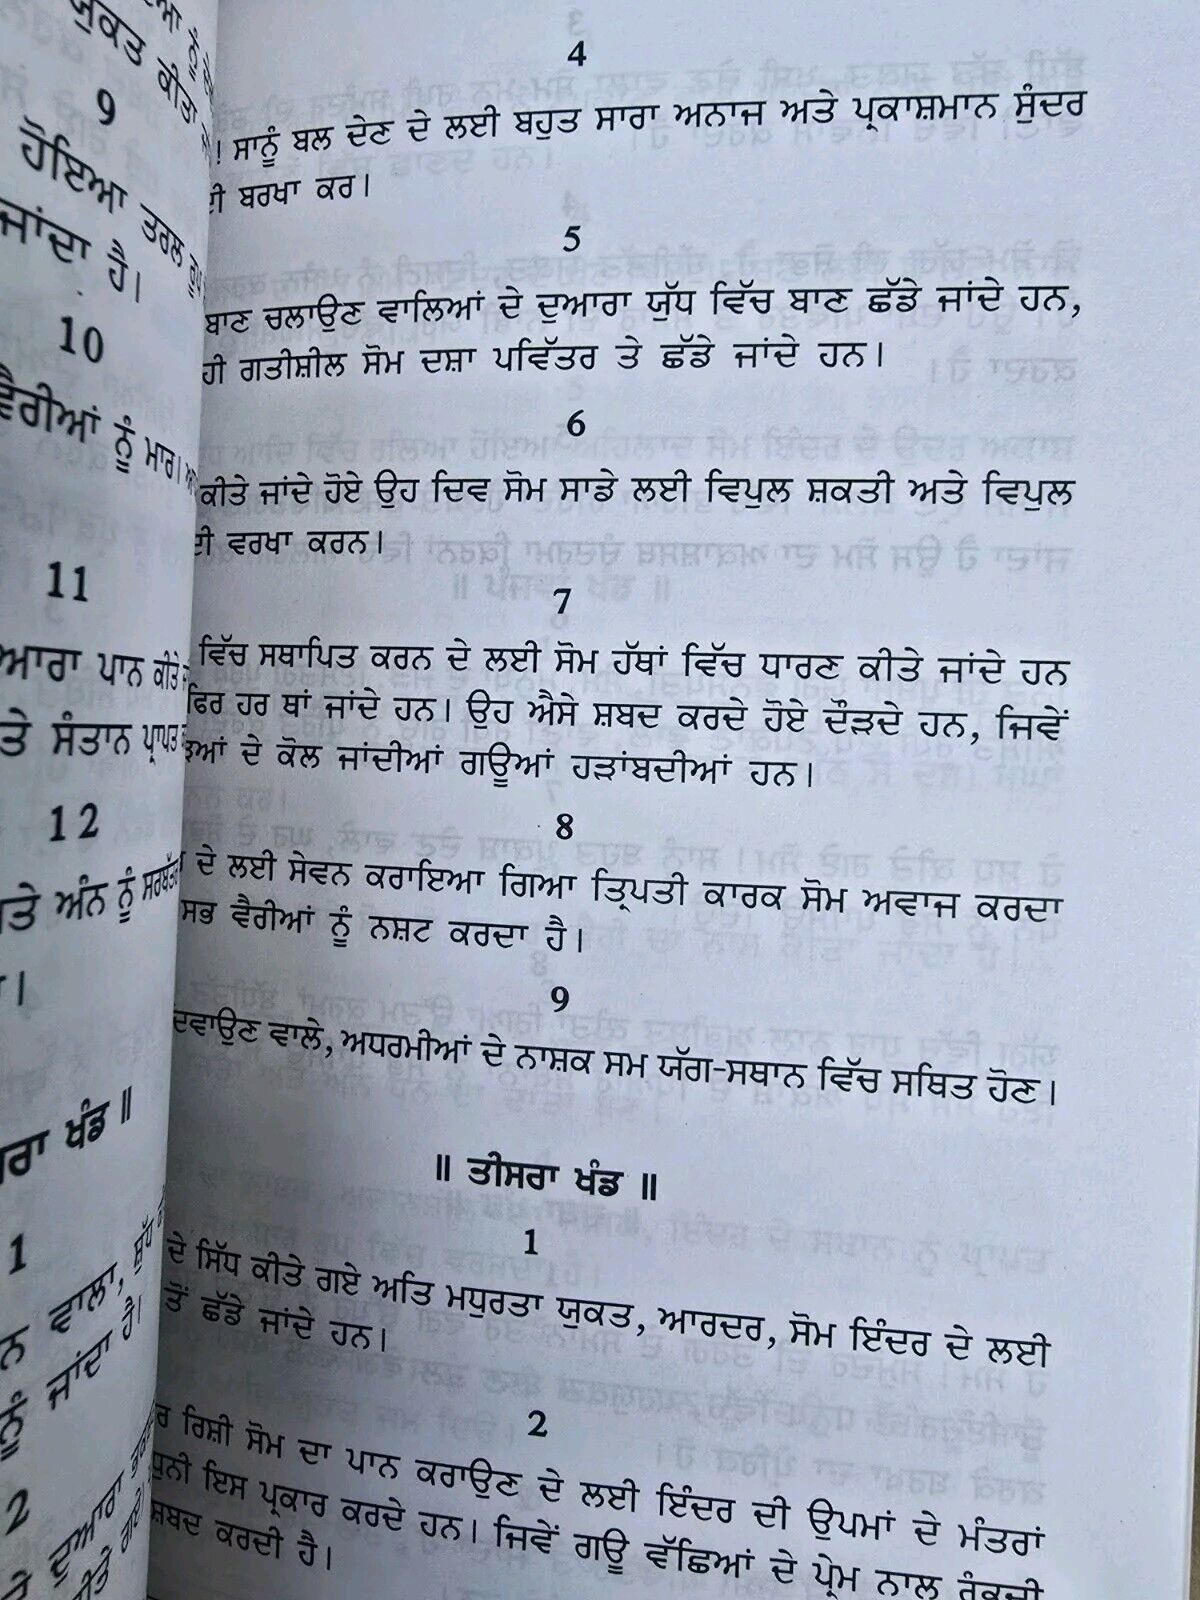 ਯੁਕਤ ਕੀਤਾ
9
ਹੋਇਆ ਤਰਲ
ਜਾਂਦਾ ਹੈ।
10
ਵੈਰੀਆਂ ਨੂੰ ਮਾਰ।
11
ਪਾਨ ਕੀਤੇ
ਤੇ ਸੰਤਾਨ ਪ੍ਰਾਪਤ
12
ਤੇ ਅੰਨ ਨੂੰ
।
ਖੰਡ ॥
1
ਵਾਲਾ,
ਨੂੰ ਜਾਂਦਾ ਹੈ।
2
ਦੁਆਰਾ
4
! ਸਾਨੂੰ ਬਲ ਦੇਣ ਦੇ ਲਈ ਬਹੁਤ ਸਾਰਾ ਅਨਾਜ ਅਤੇ ਪ੍ਰਕਾਸ਼ਮਾਨ ਸੁੰਦਰ
ਬਰਖਾ ਕਰ।
5
ਬਾਣ ਚਲਾਉਣ ਵਾਲਿਆਂ ਦੇ ਦੁਆਰਾ ਯੁੱਧ ਵਿੱਚ ਬਾਣ ਛੱਡੇ ਜਾਂਦੇ ਹਨ,
ਹੀ ਗਤੀਸ਼ੀਲ ਸੋਮ ਦਸ਼ਾ ਪਵਿੱਤਰ ਤੇ ਛੱਡੇ ਜਾਂਦੇ ਹਨ।
6
ਕੀਤੇ ਜਾਂਦੇ ਹੋਏ ਉਹ ਦਿਵ ਸੋਮ ਸਾਡੇ ਲਈ ਵਿਪੁਲ ਸ਼ਕਤੀ ਅਤੇ ਵਿਪੁਲ
ਵਰਖਾ ਕਰਨ।
7
ਵਿੱਚ ਸਥਾਪਿਤ ਕਰਨ ਦੇ ਲਈ ਸੋਮ ਹੱਥਾਂ ਵਿੱਚ ਧਾਰਣ ਕੀਤੇ ਜਾਂਦੇ ਹਨ
ਫਿਰ ਹਰ ਥਾਂ ਜਾਂਦੇ ਹਨ। ਉਹ ਐਸੇ ਸ਼ਬਦ ਕਰਦੇ ਹੋਏ ਦੌੜਦੇ ਹਨ, ਜਿਵੇਂ
ਦੇ ਕੋਲ ਜਾਂਦੀਆਂ ਗਊਆਂ ਹੜਾਂਬਦੀਆਂ ਹਨ।
8
ਦੇ ਲਈ ਸੇਵਨ ਕਰਾਇਆ ਗਿਆ ਤ੍ਰਿਪਤੀ ਕਾਰਕ ਸੋਮ ਅਵਾਜ ਕਰਦਾ
ਸਭ ਵੈਰੀਆਂ ਨੂੰ ਨਸ਼ਟ ਕਰਦਾ ਹੈ।
9
ਦਵਾਉਣ ਵਾਲੇ, ਅਧਰਮੀਆਂ ਦੇ ਨਾਸ਼ਕ ਸਮ ਯੱਗ-ਸਥਾਨ ਵਿੱਚ ਸਥਿਤ ਹੋਣ।
॥ ਤੀਸਰਾ ਖੰਡ ॥
1
ਦੇ ਸਿੱਧ ਕੀਤੇ ਗਏ ਅਤਿ ਮਧੁਰਤਾ ਯੁਕਤ, ਆਰਦਰ, ਸੋਮ ਇੰਦਰ ਦੇ ਲਈ
ਤੋਂ ਛੱਡੇ ਜਾਂਦੇ ਹਨ।
2
ਰਿਸ਼ੀ ਸੋਮ ਦਾ ਪਾਨ ਕਰਾਉਣ ਦੇ ਲਈ ਇੰਦਰ ਦੀ ਉਪਮਾਂ ਦੇ ਮੰਤਰਾਂ
ਧੁਨੀ ਇਸ ਪ੍ਰਕਾਰ ਕਰਦੇ ਹਨ। ਜਿਵੇਂ ਗਊ ਵੱਛਿਆਂ ਦੇ ਪ੍ਰੇਮ ਨਾਲ
ਸ਼ਬਦ ਕਰਦੀ ਹੈ।